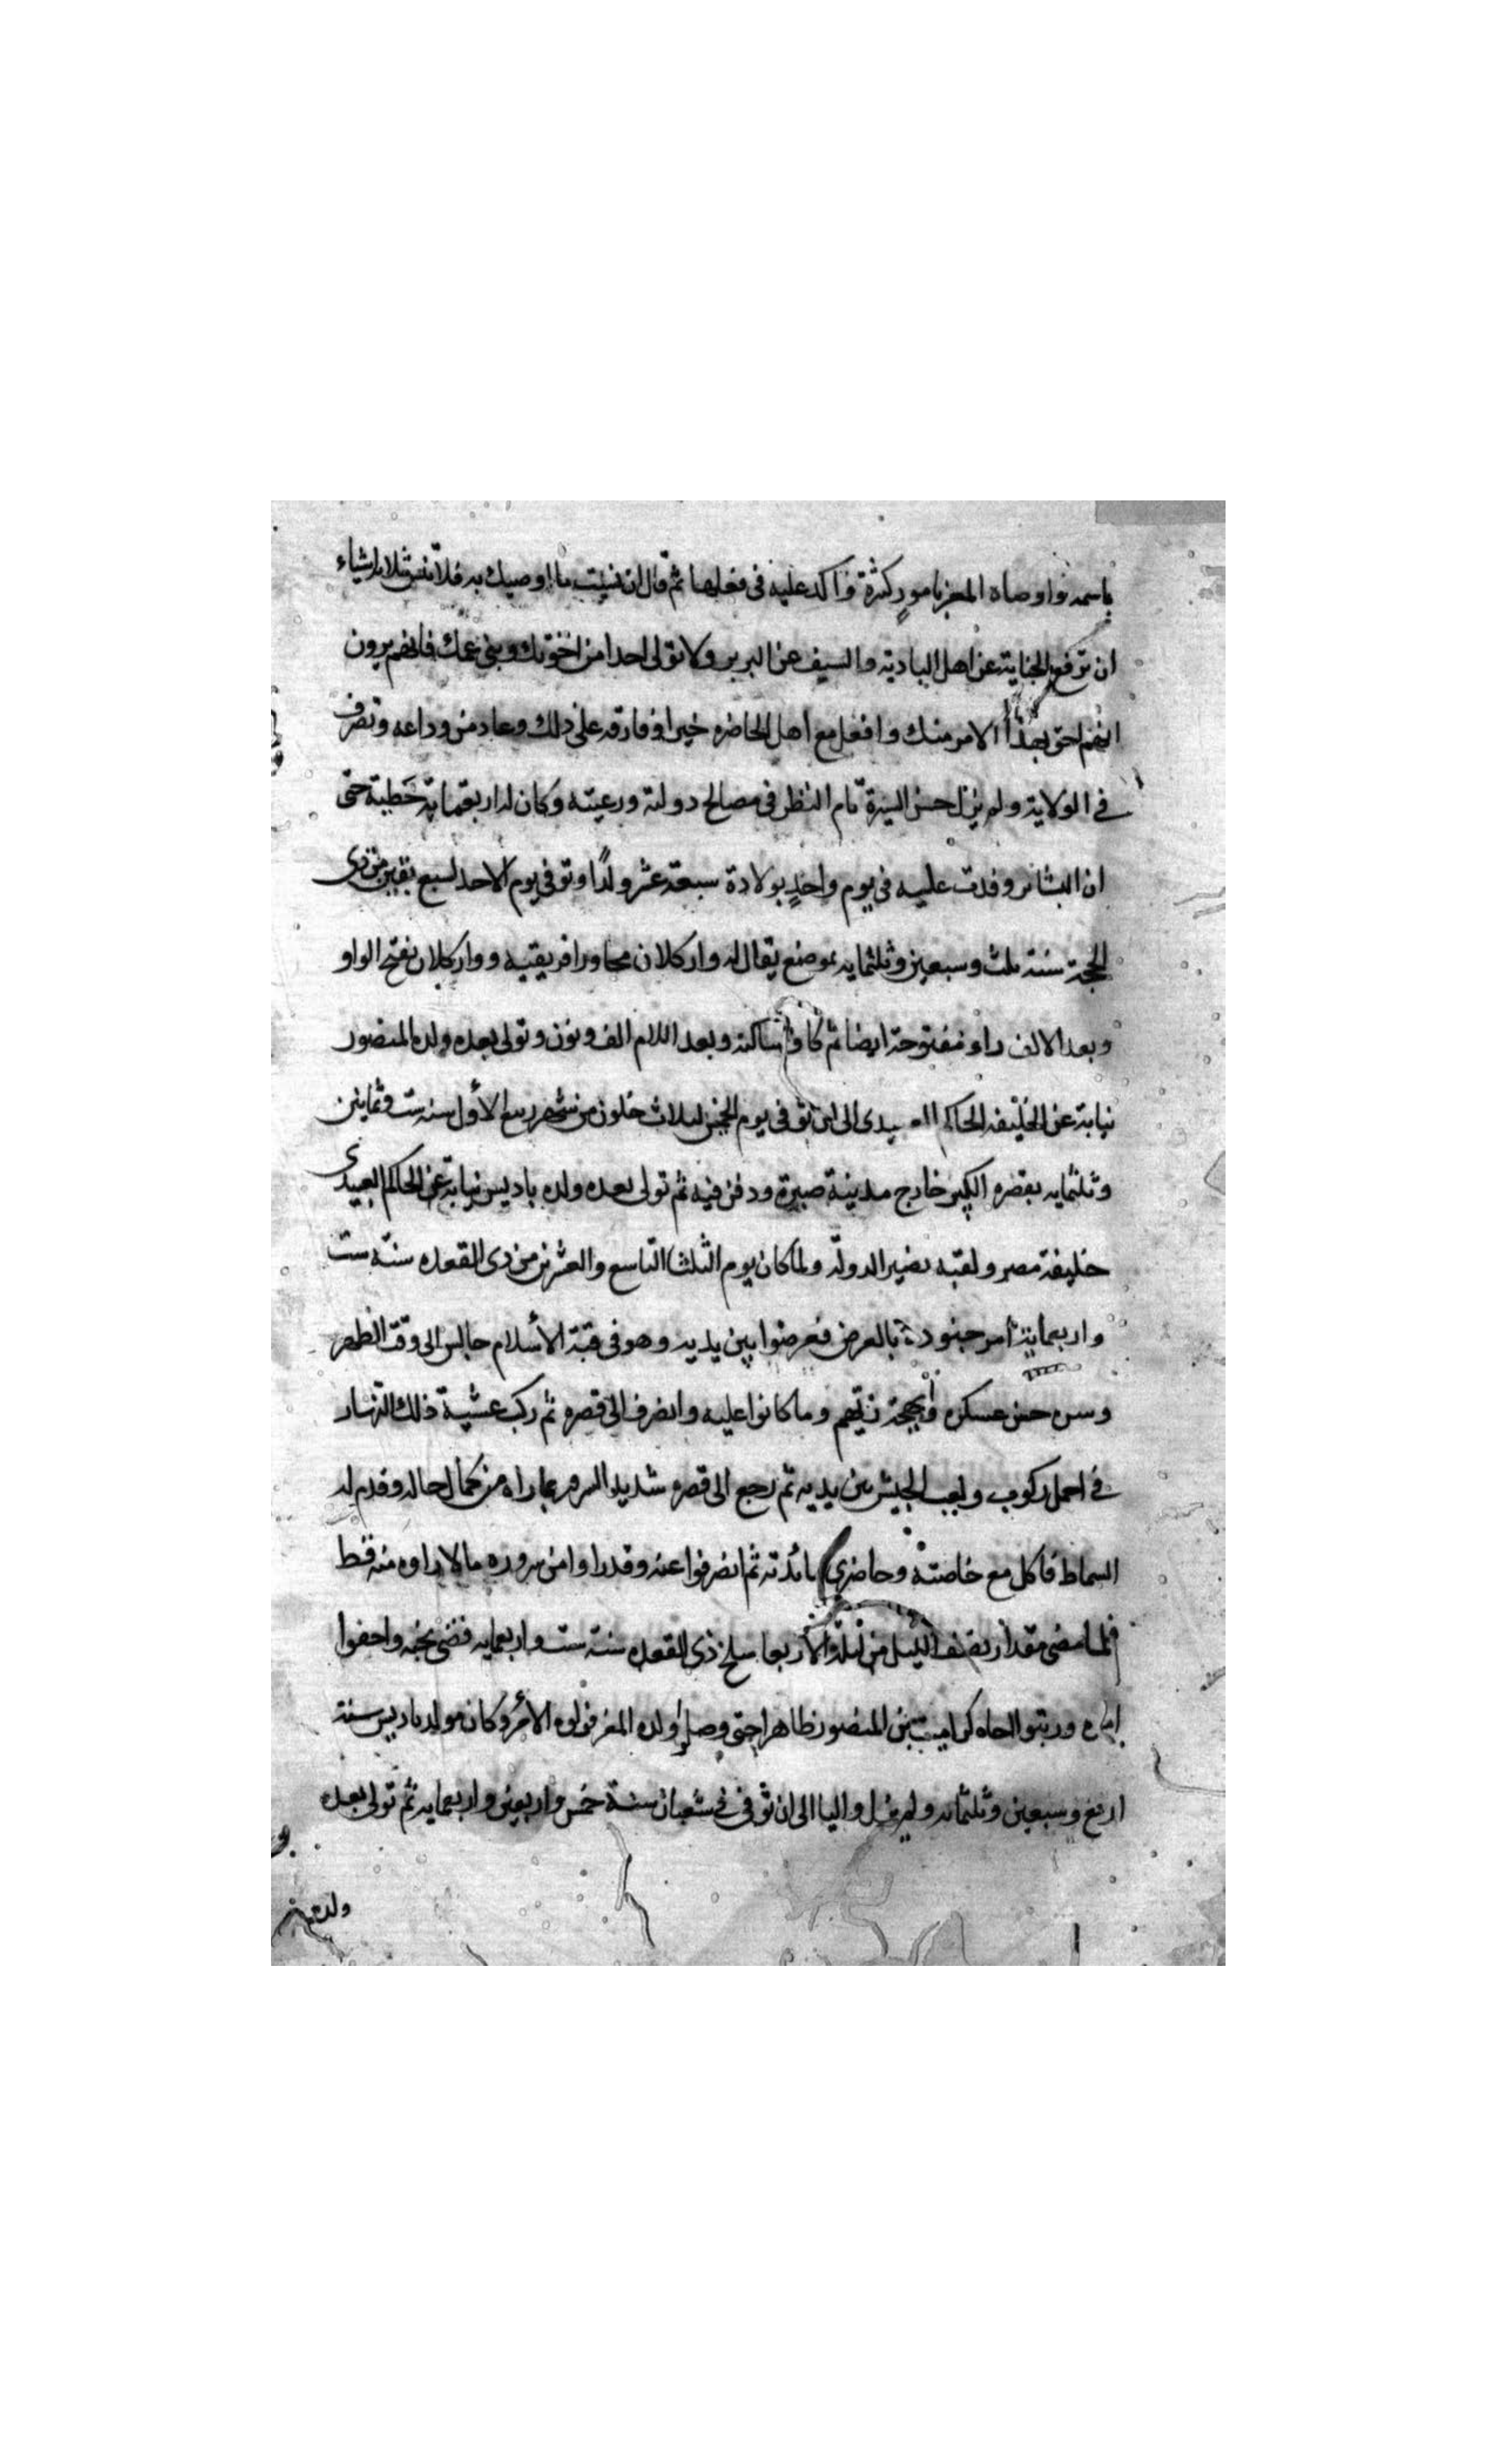 باسمه واوصاه المعز بامور كثيرة واكد عليه فى فعلها ثم قال ان نسيت ما اوصيك به فلا تنس ثلاثة اشياء
ان ترفع الجناية عن اهل البادية والسيف عن البربر ولا تولى احدا من اخوتك وبنى عمك فانهم يرون
انهم احق بهذا الامر منك وافعل مع اهل الحاضره خيرا وفارقه على ذلك وعاد من وداعه وتصرف
فى الولاية ولم يزل حسن السيرة تام النظر فى مصالح دولته ورعيته وكان له اربعمائة حظية حتى
ان البشائر وفدت عليه فى يوم واحد بولادة سبعة عشر ولدًا وتوفى يوم الاحد لسبع بقين من ذى
الحجة سنة ثلث وسبعين وثلثمايه بموضع يقال له واركلان مجاور افريقيه وواركلان بفتح الواو
وبعد الالف راء مفتوحة ايضا ثم كاف ساكنة وبعد اللام الف ونون وتولى بعده ولده المنصور
نيابة عن الخليفه الحاكم العبيدى الى ان توفى يوم الخميس لثلاث خلون من شهر ربيع الأول سنه ست وثمانين
وثلثمايه بقصره الكبير خارج مدينة صبرة ودفن فيه ثم تولى بعده ولده باديس نيابة عن الحاكم العبيدى
خليفة مصر ولقبه نصير الدولة ولما كان يوم الثلثا التاسع والعشرين من ذى القعده سنة ست
واربعماية امر جنوده بالعرض فعرضوا بين يديه وهو فى قبة الأسلام جالس الى وقت الظهر
وسره حسن عسكره وابهجه زيهم وما كانوا عليه وانصرف الى قصره ثم ركب عشية ذلك النهار
فى اجمل ركوب ولعب الجيش بين يديه ثم رجع الى قصره شديد السرور بما راه من كمال حاله وقدم له
السماط فاكل مع خاصته وحاضرى مائدته ثم انصرفوا عنه وقد راوا من سروره ما لا راوه منه قط
فلما مضى مقدار نصف الليل من ليلة الأربعا سلخ ذى القعده سنة ست واربعمايه قضى نحبه واخفوا
امره ورتبوا اخاه كرامت بن المنصور ظاهرا حتى وصلوا ولده المعز فولوه الأمر وكان مولد باديس سنة
اربع وسبعين وثلثمائه ولم يزل واليا الى ان توفى فى شعبان سنة خمس واربعين واربعمايه ثم تولى بعده
ولده